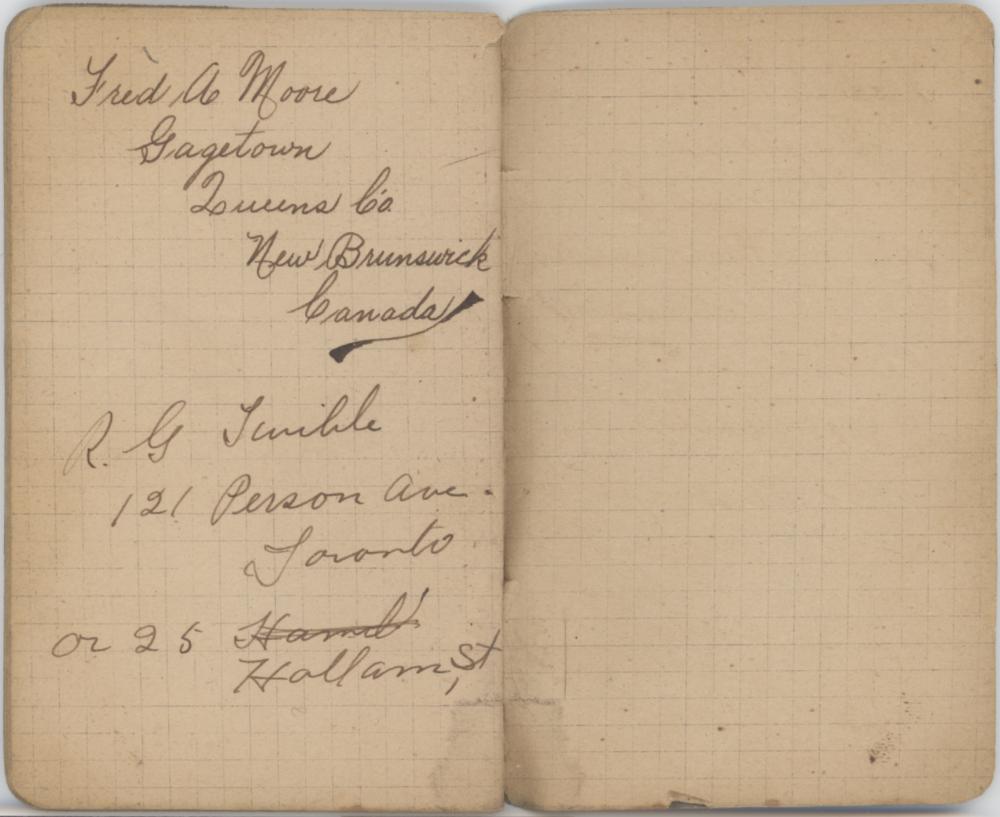 Fred A Moore
Gagetown
Queens Co
New Brunswick
Canada
R. G Twible
121 Person Ave.
Toronto
or 25 Hamil
Hallam, St